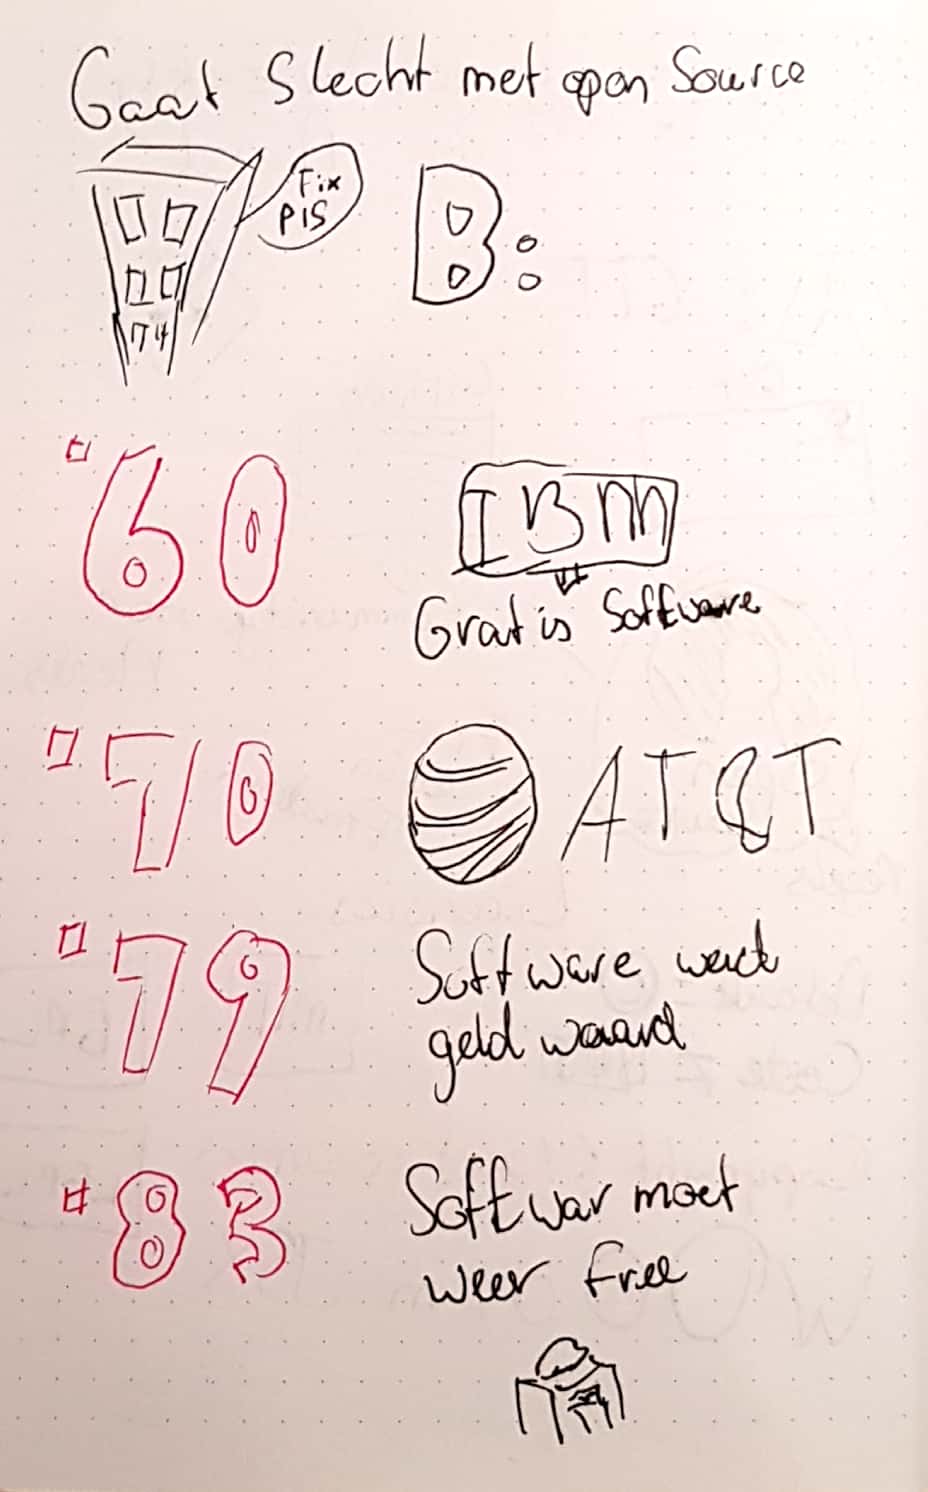 Gaat Slecht met open Source
Fix
PIS
B:
'60
IBM
Gratis Software
'70
AT&T
'79
Software werd
geld waard
'83
Softwar moet
weer free